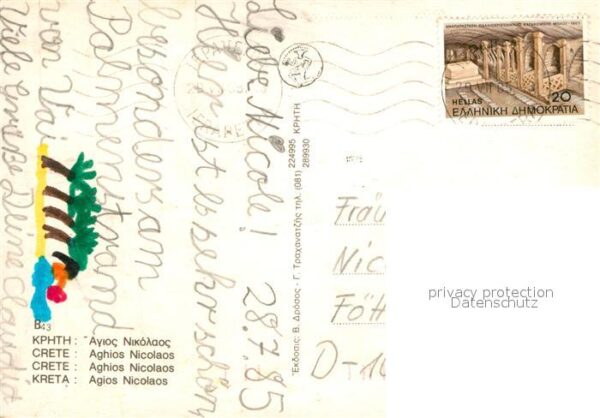 Liebe Nicole! 28.7.85
Hier ist es sehr schön
besonders am
Palmenstrand
von Vai
Viele Grüße Deine Claudia
Β43
ΚΡΗΤΗ : Άγιος Νικόλαος
CRETE : Aghios Nicolaos
CRETE : Aghios Nicolaos
KRETA : Agios Nicolaos
Έκδοσις: Β. Δρόσος - Γ. Τραχανατζής τηλ. (081) 224995 ΚΡΗΤΗ
289930
HELLAS 20
ΕΛΛΗΝΙΚΗ ΔΗΜΟΚΡΑΤΙΑ
Fräu
Nic
Föh
D-10
privacy protection
Datenschutz